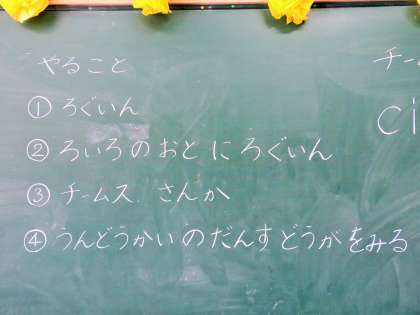 やること
①ろぐいん
②ろいろのおとにろぐいん
③チームス さんか
④うんどうかいのだんすどうがをみる
チーム
ci